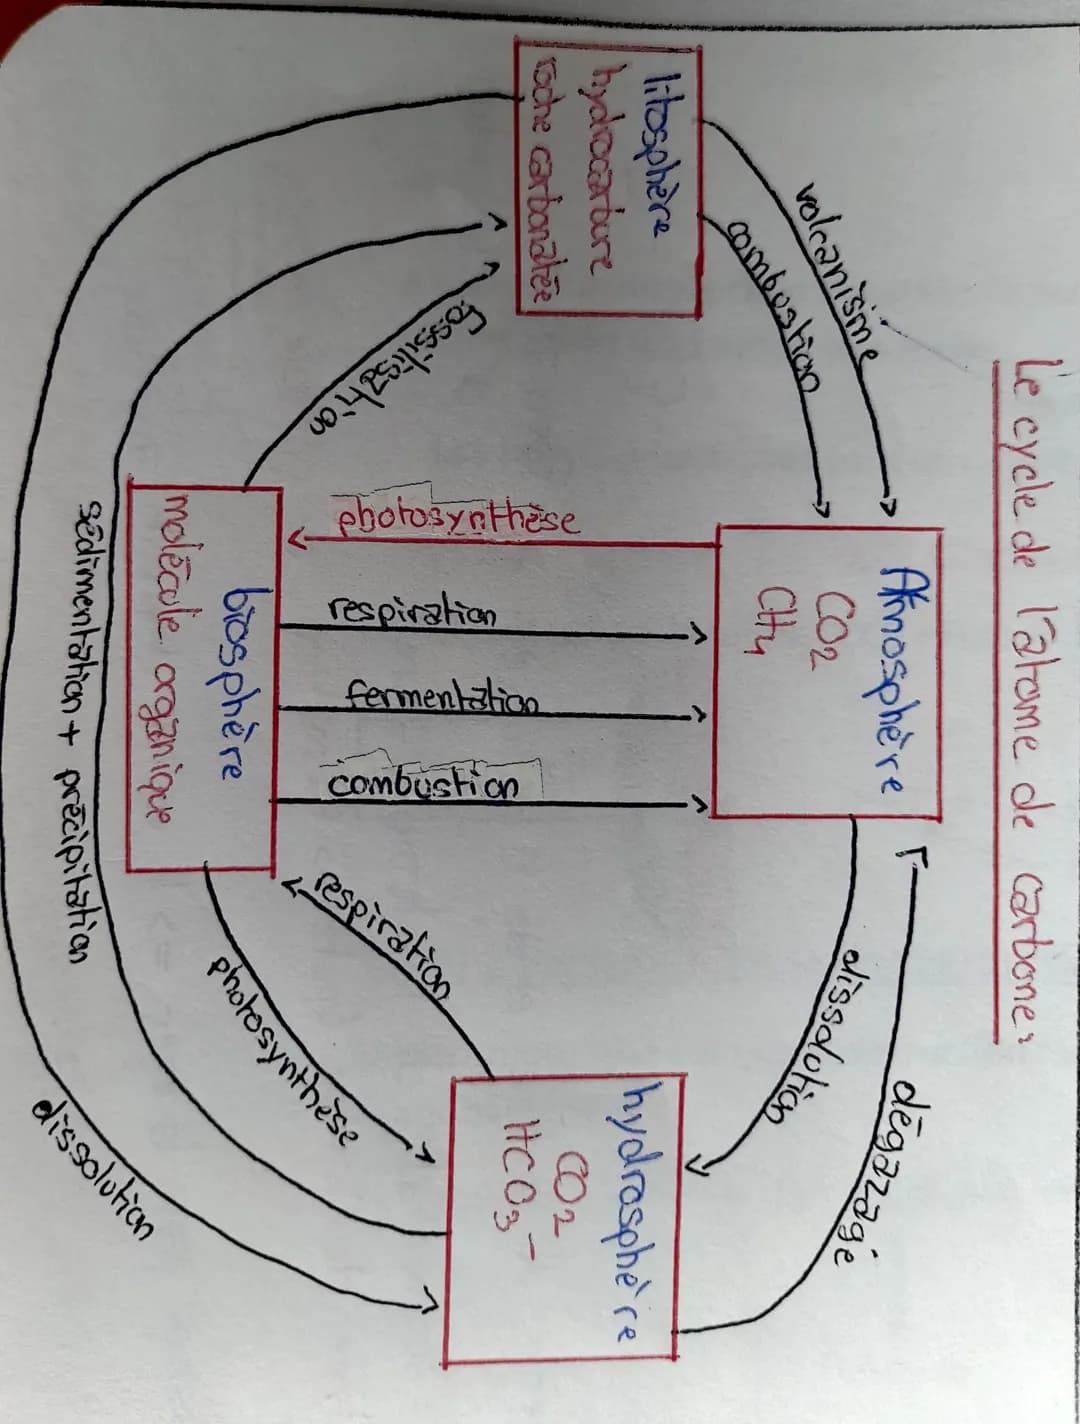 Le cycle de l'atome de carbone:
Atmosphère
CO2
CH4
volcanisme
combustion
litosphère
hydrocarbure
roche carbonatée
dissolution
dégazage
hydrosphère
CO2
HCO3-
photosynthèse
respiration
fermentation
combustion
fossilisation
respiration
photosynthèse
biosphère
molécule organique
sédimentation + précipitation
dissolution